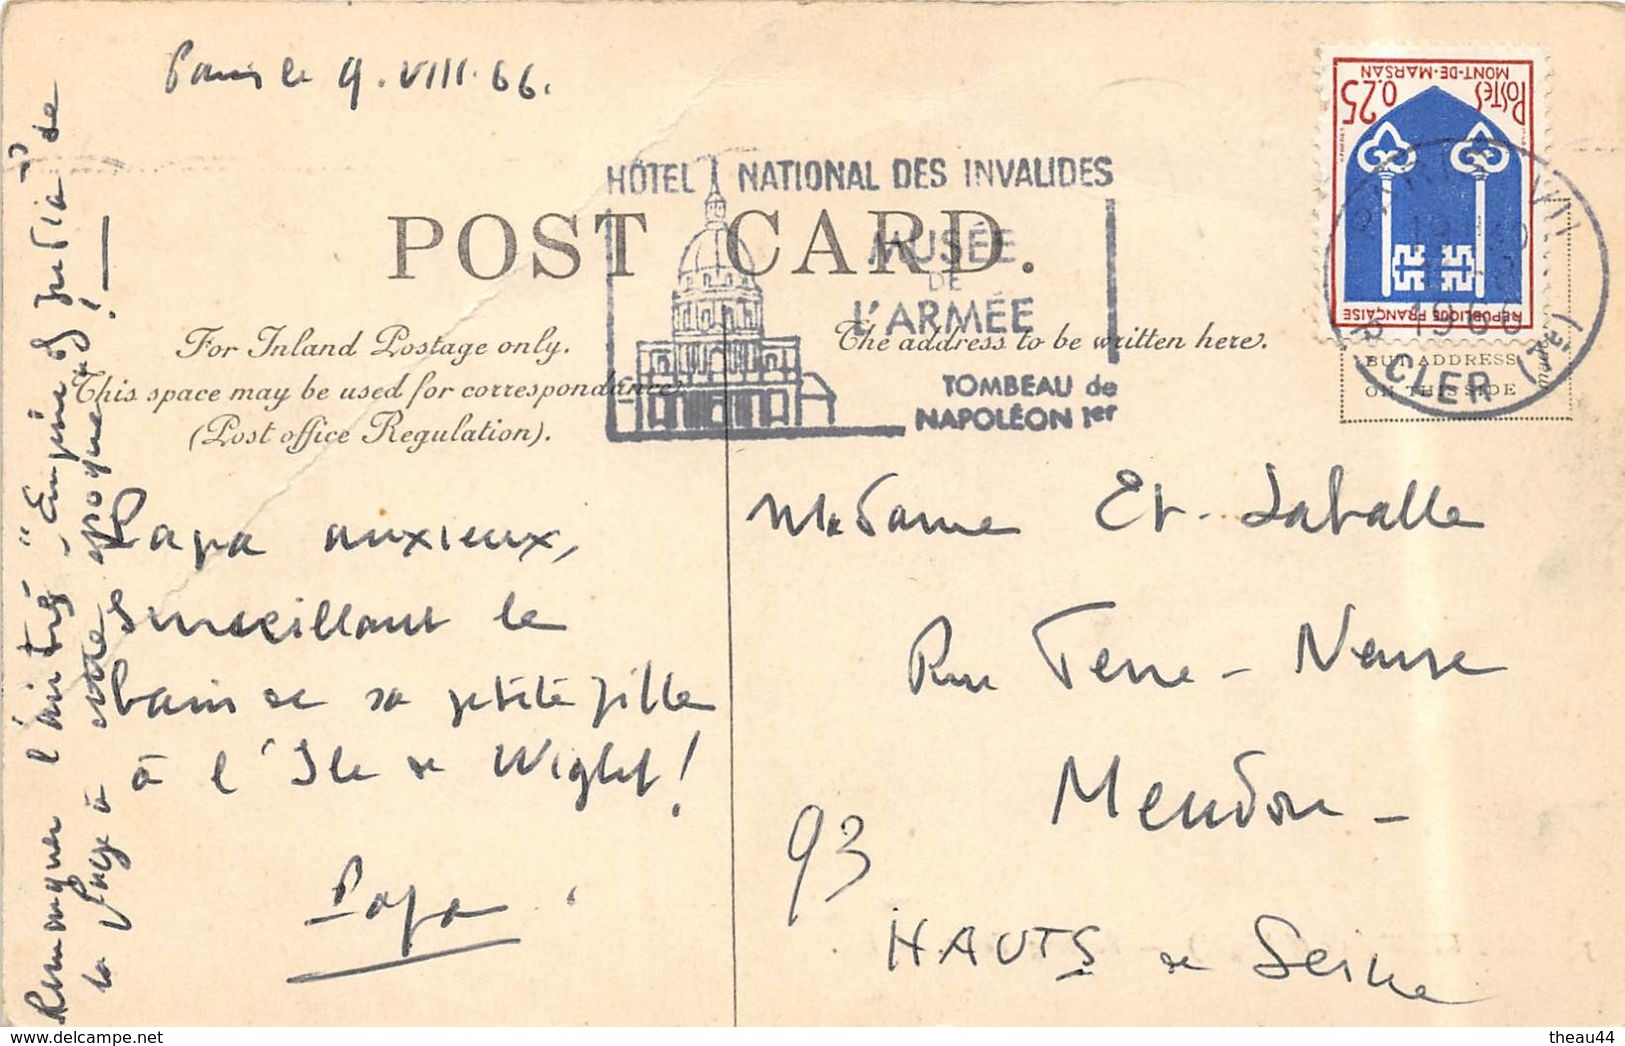 Paris le 9.VIII.66.
HÔTEL NATIONAL DES INVALIDES
MUSÉE
DE
L'ARMÉE
TOMBEAU de
NAPOLÉON 1er
POST CARD.
For Inland Postage only.
This space may be used for correspondance
(Post office Regulation).
The address to be written here.
POSTES
0,25
MONT-DE-MARSAN
RÉPUBLIQUE FRANÇAISE
1966
BUT ADDRESS
ON THIS SIDE
Papa anxieux,
surveillant le
bain de sa petite fille
à l'Ile de Wight!
Papa
Madame Et. Laballe
Rue Terre-Neuve
Meudon -
93
HAUTS de Seine
Remarquer l'
"Empire of India" de
la Plage à cette époque!
theau44